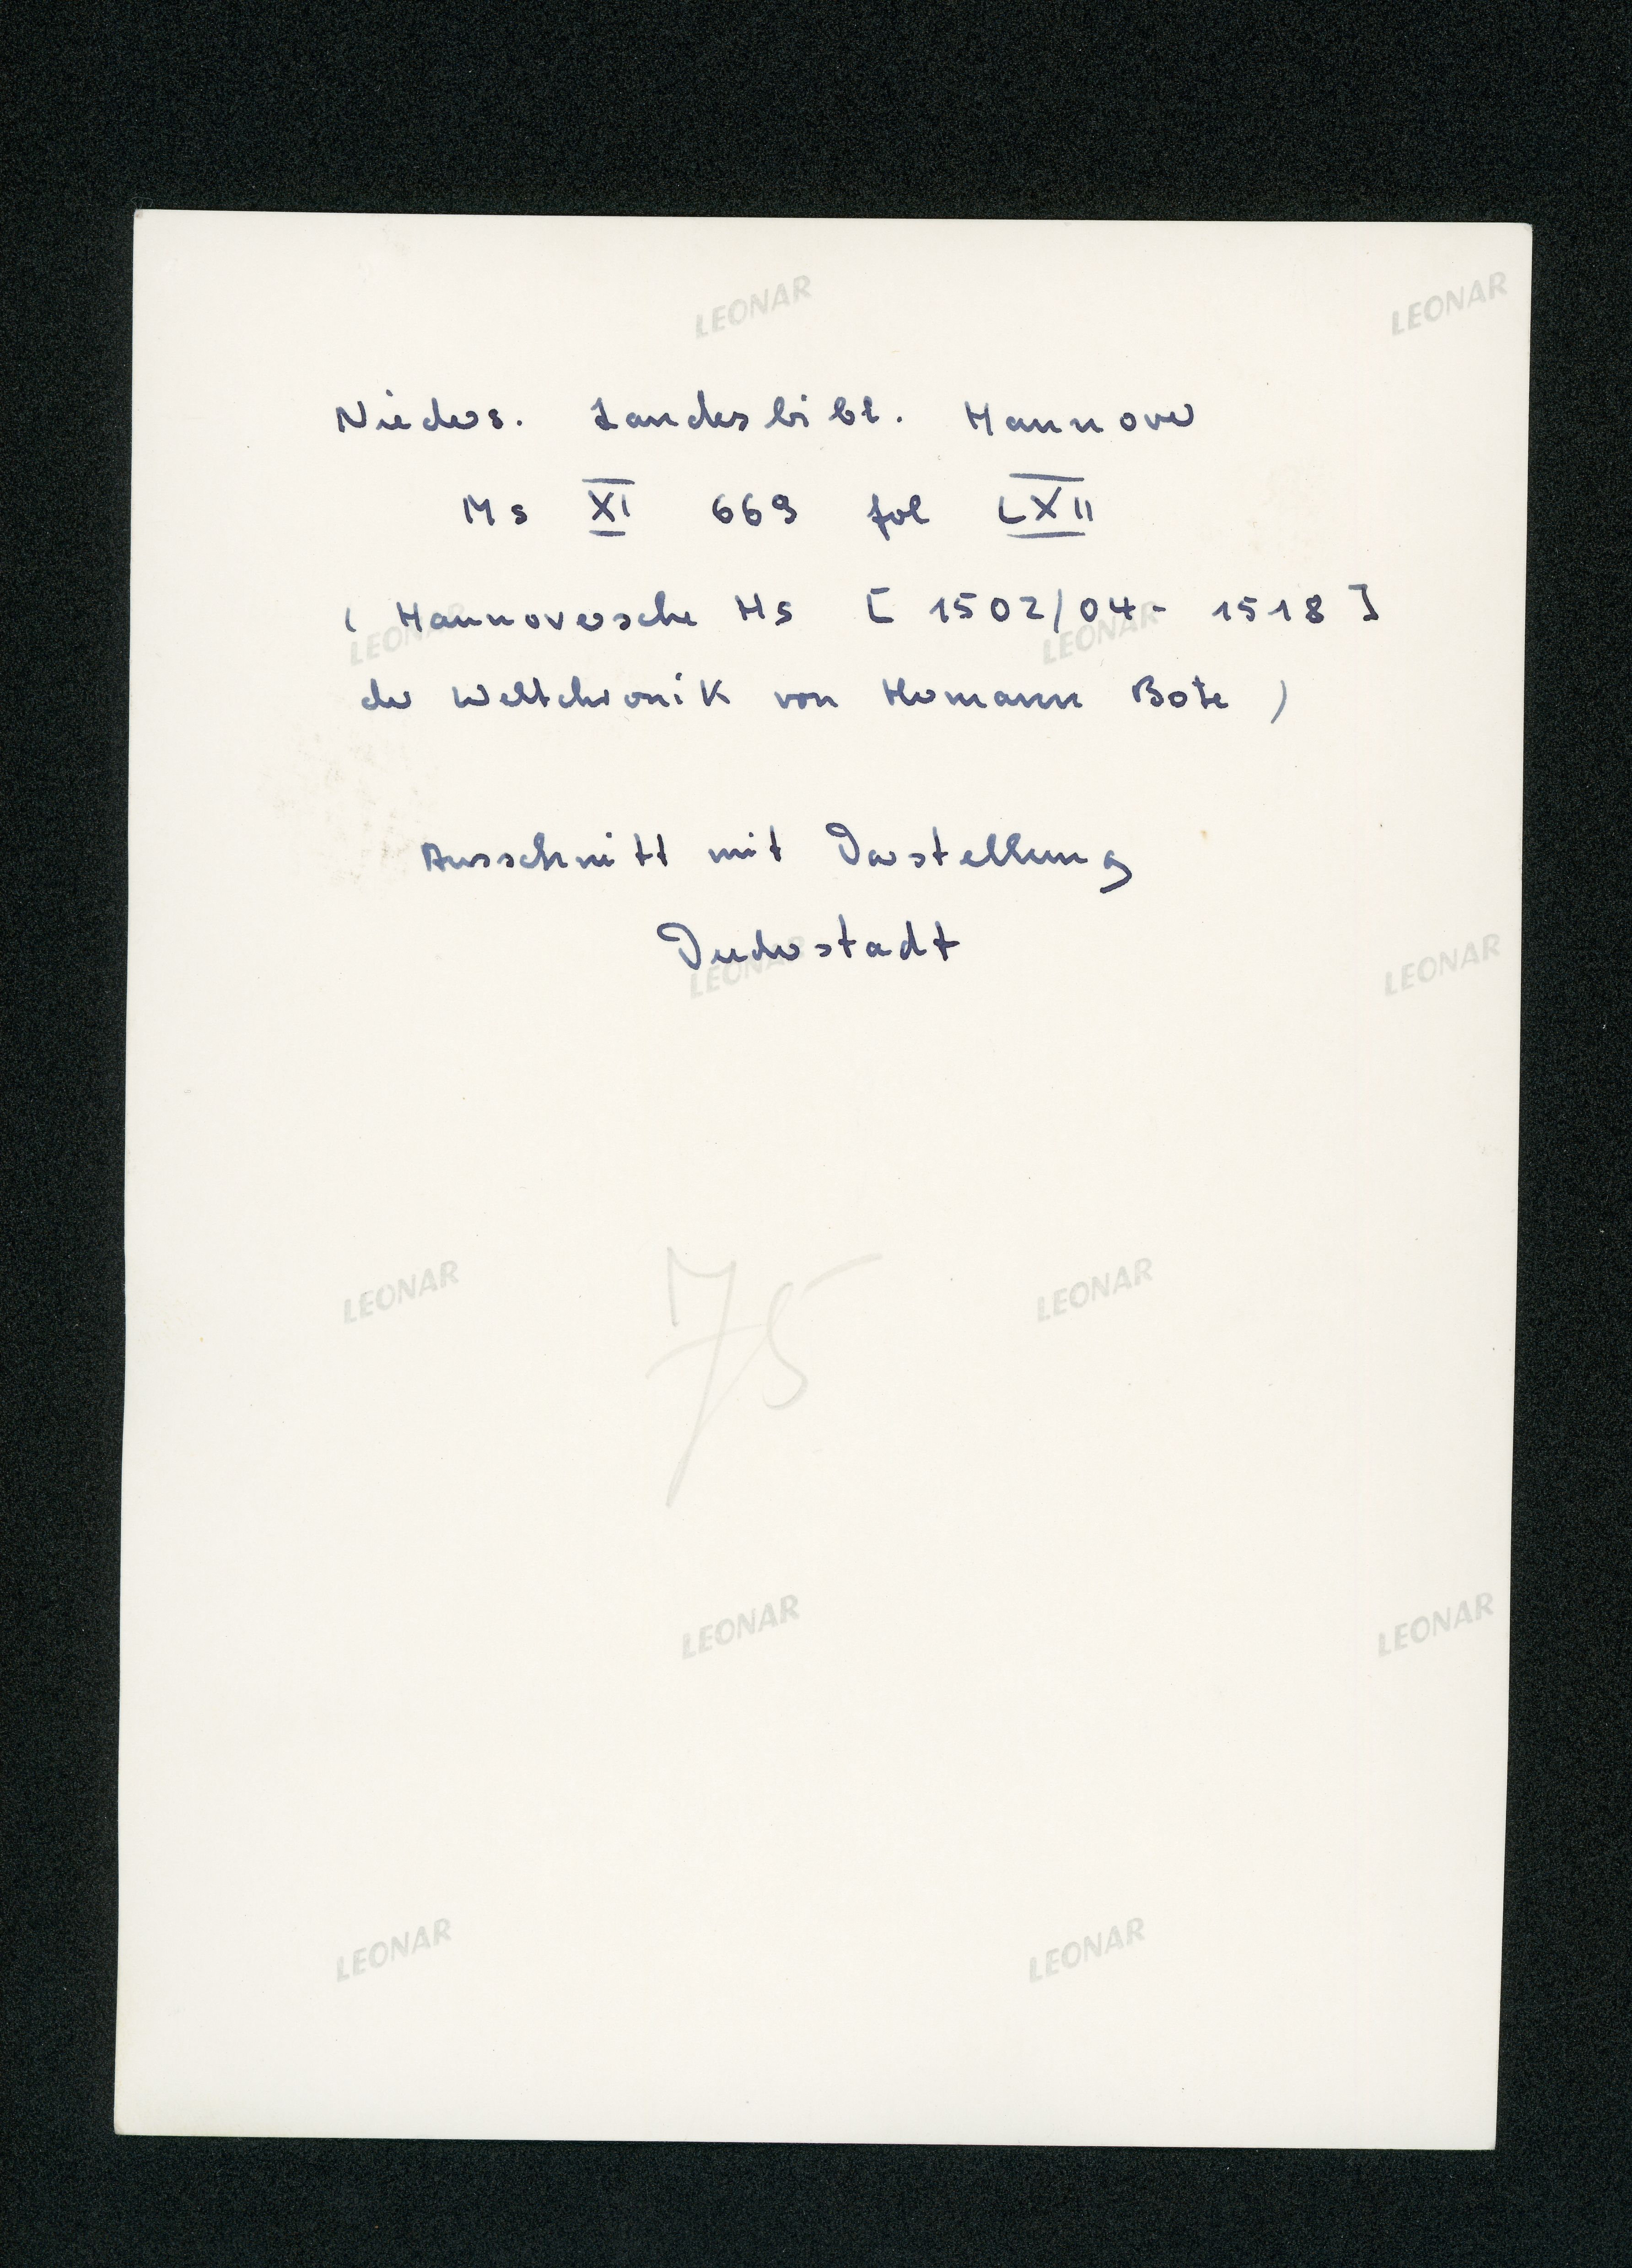 LEONAR LEONAR
Nieders. Landesbibl. Hannover
Ms XI 669 fol LXII
( Hannoversche Hs [ 1502/04- 1518 ]
LEONAR LEONAR
der Weltchronik von Hermann Bote )
Ausschnitt mit Darstellung
Duderstadt
LEONAR LEONAR
75
LEONAR LEONAR
LEONAR LEONAR
LEONAR LEONAR